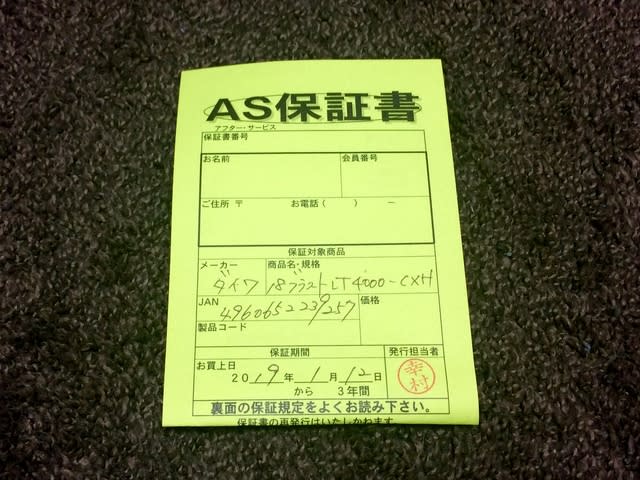 AS保証書
アフター・サービス
保証書番号
お名前
会員番号
ご住所 〒
お電話（ ） －
保証対象商品
メーカー
商品名・規格
ダイワ
18ブラストLT4000-CXH
JAN
4960652239257
価格
製品コード
保証期間
発行担当者
お買上日
2019年 1月 12日
から 3年間
幸村
裏面の保証規定をよくお読み下さい。
保証書の再発行はいたしかねます。